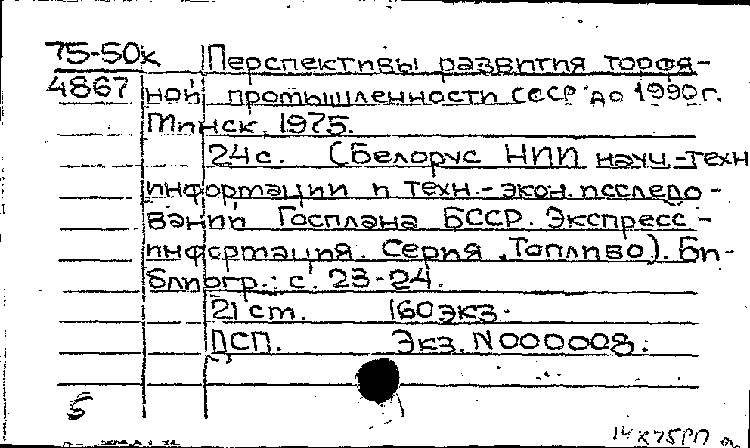 75-50к Перспективы развития торфя-
4867 ной промышленности СССР до 1990г.
Минск, 1975.
24с. (Белорус НИИ науч.-техн
информации и техн.-экон. исследо-
ваний Госплана БССР. Экспресс-
информация. Серия "Топливо). Би-
блиогр.: с. 23-24.
21 ст. 160 экз.
ДСП. Экз. N000008.
Б
14 X75РП